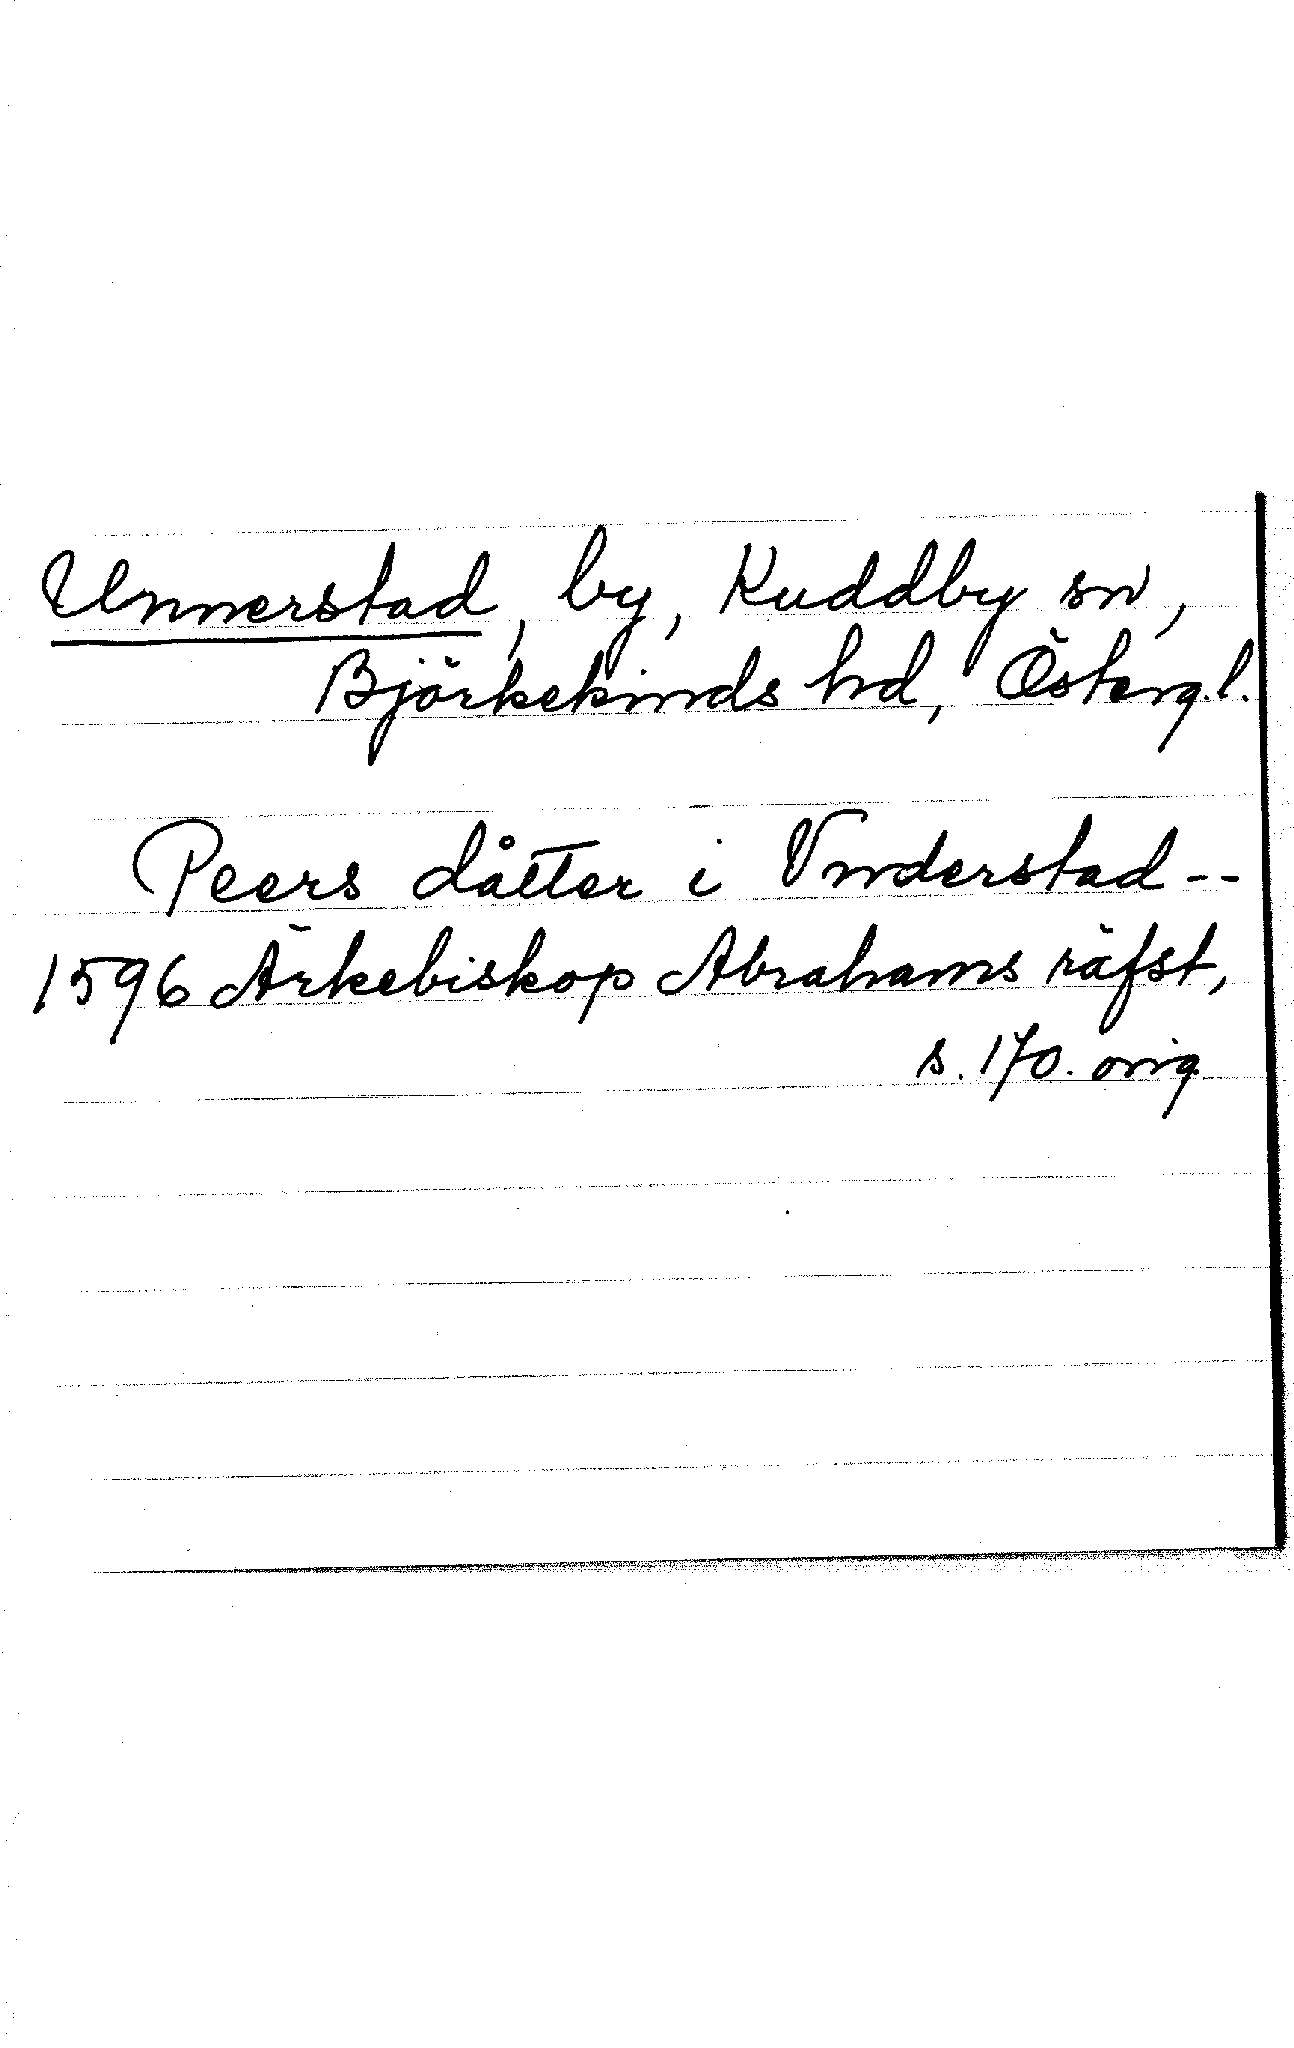 Unnerstad, by, Kuddby sn,
Björkekinds hd, Österg.l.
Peers dåtter i Vnderstad --
1596 Ärkebiskop Abrahams räfst,
s. 170. orig.